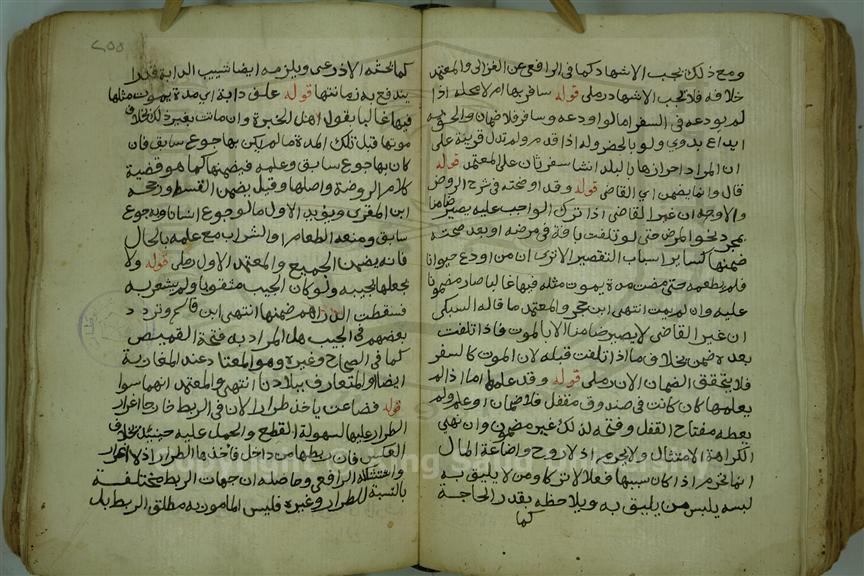 ومع ذلك يجب الاشهاد كما في الرافعي عن الغزالي والمعتمد
خلافه فلا يجب الاشهاد رملي قوله سافر بها ام لا محله اذا
لم يودعه في السفر اما لو اودعه وسافر فلا ضمان والحق به
ايداع بدوي ولو بالحضر وله اذا قدم ولم تدل قرينة على
ان المراد احرازها بالبلد انشا سفر ثان على المعتمد قوله
قال وانما يضمن اي القاضي قوله وقد اوضحته في شرح الروض
والاوجه ان غير القاضي اذا ترك الواجب عليه يصير ضامنا
بمجرد نحو المرض حتى لو تلفت بافة في مرضه او بعد صحته
ضمنها كساير اسباب التقصير الا ترى ان من اودع حيوانا
فلم يطعمه حتى مضت مدة يموت مثله فيها غالبا صار مضمونا
عليه وان لم يمت انتهى ابن حجر والمعتمد ما قاله السبكي
ان غير القاضي لا يصير ضامنا الا بالموت فاذا تلفت
بعده ضمن بخلاف ما اذا تلفت قبله لان الموت كالسفر
فلا يتحقق الضمان الا به رملي قوله وقد علمها اما اذا لم
يعلمها كان كانت في صندوق مقفل فلا ضمان او علم ولم
يعطه مفتاح القفل وفتحه لذلك غير مضمن وان نهى
الكراهة الامتثال ولا يحرم اذ لا روح واضاعة المال
انما تحرم اذا كان سببها فعلا لا تركا ومن لا يليق به
لبسه يلبس من يليق به ويلاحظه بقدر الحاجة
كما
٢٥٥
كما بحثه الاذرعي ويلزمه ايضا تسيب الدابة قدرا
يندفع به زمانتها قوله علف دابة اي مدة يموت مثلها
فيها غالبا بقول اهل الخبرة وان ماتت بغير ذلك بخلاف
موتها قبل تلك المدة ما لم يكن بها جوع سابق فان
كان بها جوع سابق وعلمه فيضمنها كما هو قضية
كلام الروضة واصلها وقيل يضمن القسط ورجحه
ابن المقري ويؤيد الاول ما لو جوع انسانا وبه جوع
سابق ومنعه الطعام والشراب مع علمه بالحال
فانه يضمن الجميع والمعتمد الاول رملي قوله ولا
بجعلها بجيبه ولو كان الجيب مثقوبا ولم يشعر به
فسقطت الدراهم ضمنها انتهى ابن قاسم وتردد
بعضهم في الجيب هل المراد به فتحة القميص
كما في الصحاح وغيره وهو المعتاد عند المغاربة
ايضا والمتعارف ببلادنا انتهى والمعتمد انهما سوا
قوله فضاعت باخذ طرار لان في الربط خارجا اغرار
الطرار عليها لسهولة القطع والحمل عليه حينئذ بخلاف
العكس فان ربطها من داخل فاخذها الطرار اذ لا اغرار
الرافعي وحاصله ان جهات الربط مختلفة
بالنسبة للطرار وغيره فليس المامور به مطلق الربط بل